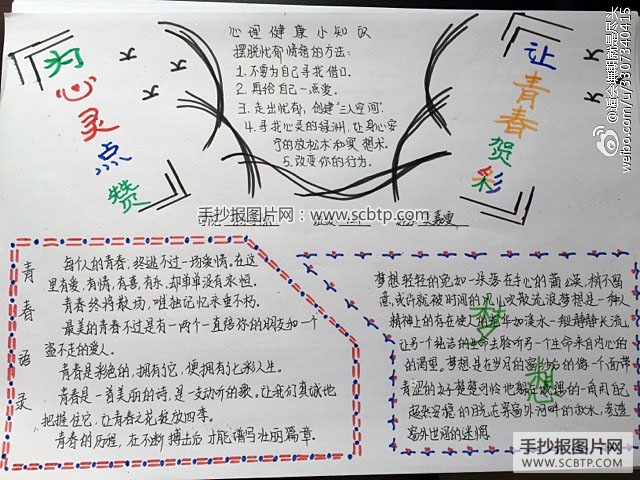 为心灵点赞
心理健康小知识
摆脱忧郁情绪的方法:
1.不要为自己寻找借口.
2.再给自己一点爱.
3.走出忧郁,创建“三人空间”.
4.寻找心灵的绿洲,让身心安
疗的放松木和冥想术.
5.改变你的行为.
让青春贺彩
手抄报图片网:www.scbtp.com
青春语录
每个人的青春,终逃不过一场爱情.在这
里有爱,有情,有喜,有乐,却单单没有永恒.
青春终将散场,唯独记忆永垂不朽.
最美的青春不过是有一两个一直陪你的朋友和一个
盗不走的爱人.
青春是彩色的,拥有了它,便拥有了七彩人生.
青春是一首美丽的诗,是一支动听的歌,让我们真诚地
把握住它,让青春之花绽放四季.
青春的历程,在不断搏击后才能谱写壮丽篇章.
梦想
梦想轻轻的宛如一朵落在手心的蒲公英,稍不留
意,或许就被时间的风儿吹散流浪梦想是一种人
精神上的存在使人的
如淡水一般静静长流,
让另一个
生命去聆听另一个生命来自内心的
的渴望.梦想是在岁月的窗
的像一个面带
青涩的女子楚楚可怜地躲在
的一角用自己
窗外世间的迷惘.
手抄报图片网
WWW.SCBTP.COM
weibo.com/u/3307340415